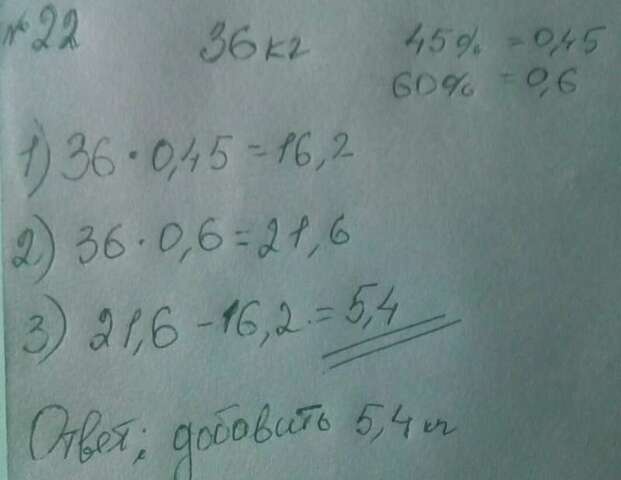 № 22 36 кг 45% = 0,45
60% = 0,6
1) 36 · 0,45 = 16,2
2) 36 · 0,6 = 21,6
3) 21,6 - 16,2 = 5,4
Ответ: добавить 5,4 кг